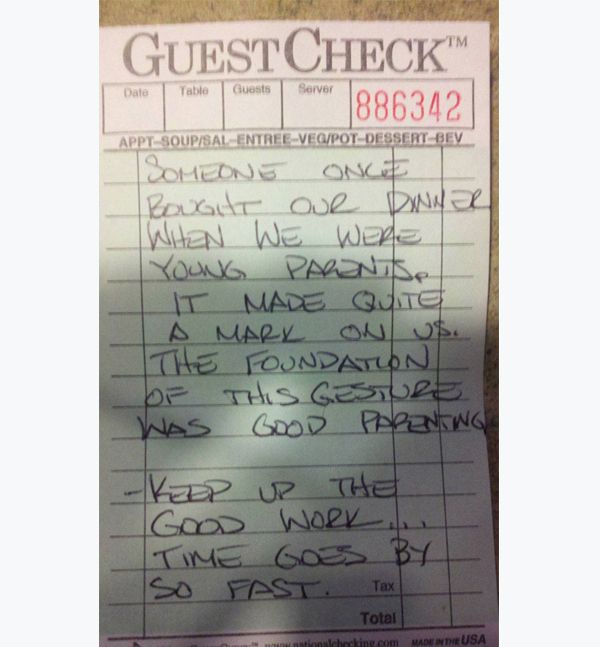 GUESTCHECK™
Date Table Guests Server 886342
APPT-SOUP/SAL-ENTREE-VEG/POT-DESSERT-BEV
SOMEONE ONCE
BOUGHT OUR DINNER
WHEN WE WERE
YOUNG PARENTS.
IT MADE QUITE
A MARK ON US.
THE FOUNDATION
OF THIS GESTURE
WAS GOOD PARENTING.
-KEEP UP THE
GOOD WORK...
TIME GOES BY
SO FAST. Tax
Total
www.nationalchecking.com MADE IN THE USA